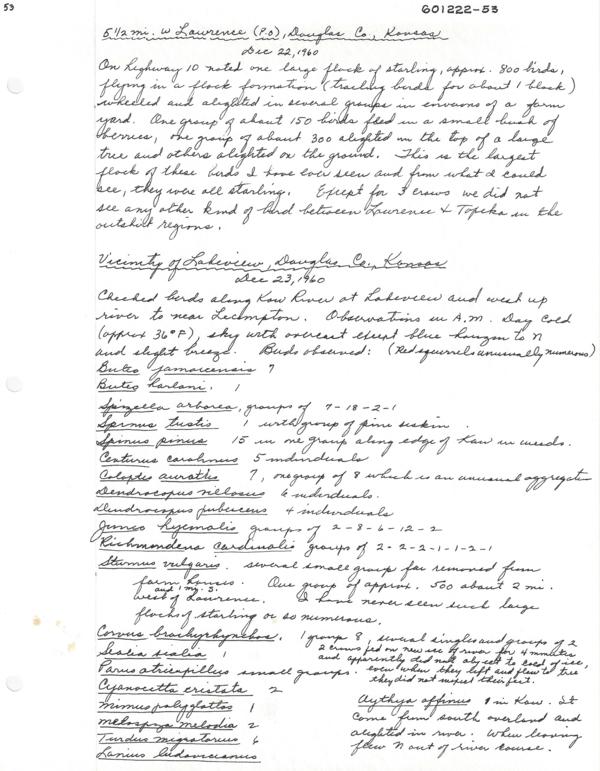 53
601222-53
5 1/2 mi. W Lawrence (P.O), Douglas Co., Kansas
Dec 22, 1960
On highway 10 noted one large flock of starling, approx. 800 birds,
flying in a flock formation (trailing birds for about 1 block)
wheeled and alighted in several groups in environs of a farm
yard. One group of about 150 birds fled in a small bush of
berries, one group of about 300 alighted in the top of a large
tree and others alighted on the ground. This is the largest
flock of these birds I have ever seen and from what I could
see, they were all starling. Except for 3 crows we did not
see any other kind of bird between Lawrence & Topeka in the
outskirt regions.
Vicinity of Lakeview, Douglas Co., Kansas
Dec 23, 1960
Checked birds along Kaw River at Lakeview and west up
river to near Lecompton. Observations in A.M. Day cold
(approx 36°F), sky with overcast except blue horizon to N
and slight breeze. Birds observed: (Red squirrels unusually numerous)
Buteo jamaicensis 7
Buteo harlani. 1
Spizella arborea, groups of 7-18-2-1
Spinus tristis 1 with group of pine siskin.
Spinus pinus 15 in one group along edge of Kaw in weeds.
Centurus carolinus 5 individuals
Colaptes auratus 7, one group of 8 which is an unusual aggregation
Dendrocopus villosus 6 individuals.
Dendrocopus pubescens 4 individuals
Junco hyemalis groups of 2-8-6-12-2
Richmondena cardinalis groups of 2-2-2-1-1-2-1
Sturnus vulgaris. several small groups far removed from
farm houses. One group of approx. 500 about 2 mi.
west of Lawrence. I have never seen such large
flocks of starling or so numerous.
Corvus brachyrhynchos. 1 group 8, several singles and groups of 2
2 crows fed on new ice of river for 4 minutes
and apparently did not object to cold of ice,
Sialia sialis 1
even when they left and flew to tree
they did not inspect their feet.
Parus atricapillus small groups.
Cyanocitta cristata 2
Mimus polyglottos 1
Melospiza melodia 2
Turdus migratorius 6
Lanius ludovicianus
Aythya affinus 1 in Kaw. It
came from south overland and
alighted in river. When leaving
flew N out of river course.